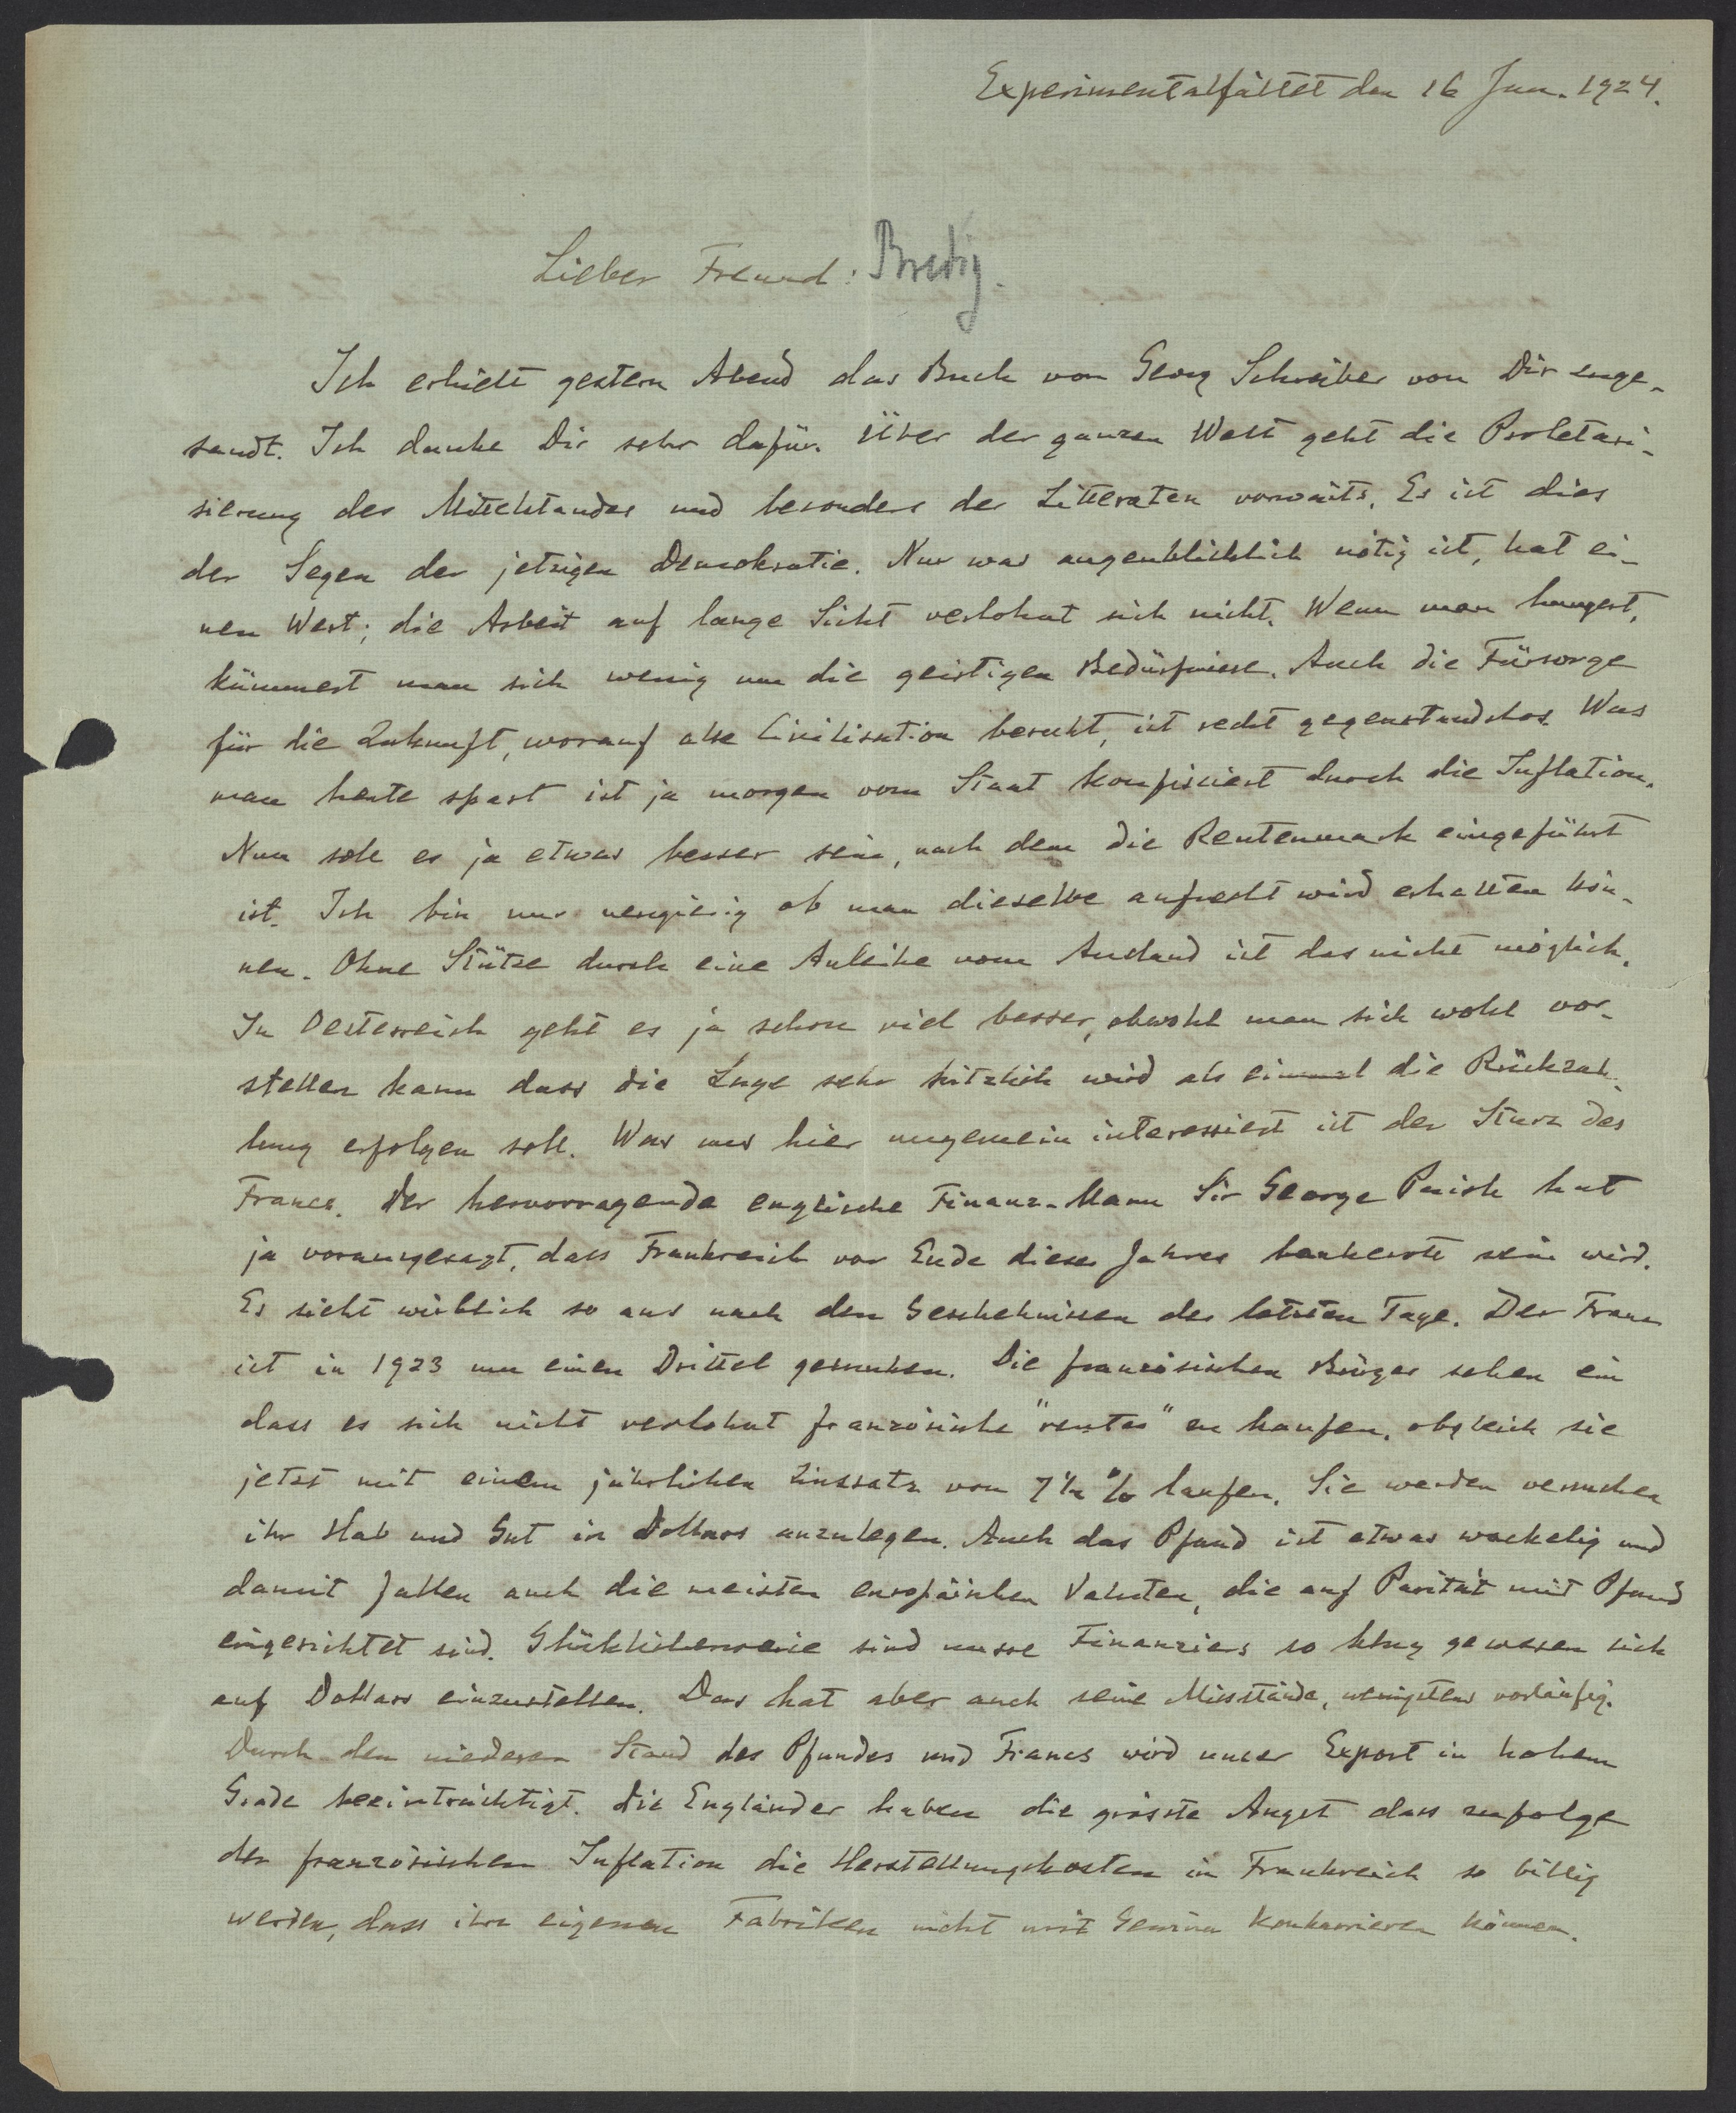 Experimentalfältet den 16 Jan. 1924.
Lieber Freund: Bredig.
Ich erhielt gestern Abend das Buch von Georg Schreiber von Dir zuge-
sandt. Ich danke Dir sehr dafür. Über der ganzen Welt geht die Proletari-
sierung des Mittelstandes und besonders der Litteraten vorwärts. Es ist dies
der Segen der jetzigen Demokratie. Nur was augenblicklich nötig ist, hat ei-
nen Wert; die Arbeit auf lange Sicht verlohnt sich nicht. Wenn man hungert,
kümmert man sich wenig um die geistigen Bedürfnisse. Auch die Fürsorge
für die Zukunft, worauf alle Civilisation beruht, ist recht gegenstandslos. Was
man heute spart ist ja morgen vom Staat konfisciert durch die Inflation.
Nun soll es ja etwas besser sein, nach dem die Rentenmark eingeführt
ist. Ich bin nur neugierig ob man dieselbe aufrecht wird erhalten kön-
nen. Ohne Stütze durch eine Anleihe vom Ausland ist das nicht möglich.
In Oesterreich geht es ja schon viel besser, obwohl man sich wohl vor-
stellen kann dass die Lage sehr kitzlich wird als einmal die Rückzah-
lung erfolgen soll. Was uns hier ungemein interessiert ist der Sturz des
Francs. Der hervorragende englische Finanz-Mann Sir George Paish hat
ja vorausgesagt, dass Frankreich vor Ende dieses Jahres bankerott sein wird.
Es sieht wirklich so aus nach den Geschehnissen der letzten Tage. Der Franc
ist in 1923 um einen Drittel gesunken. Die französischen Bürger sehen ein
dass es sich nicht verlohnt französische "rentes" zu kaufen, obgleich sie
jetzt mit einem jährlichen Zinssatz von 7½ % laufen. Sie werden versuchen
ihr Hab und Gut in Dollars anzulegen. Auch das Pfund ist etwas wackelig und
damit fallen auch die meisten europäischen Valuten, die auf Parität mit Pfund
eingerichtet sind. Glücklicherweise sind unsre Financiers so klug gewesen sich
auf Dollars einzustellen. Das hat aber auch seine Misstände, wenigstens vorläufig.
Durch den niederen Stand des Pfundes und Francs wird unser Export in hohem
Grade beeinträchtigt. Die Engländer haben die grösste Angst dass zufolge
der französischen Inflation die Herstellungskosten in Frankreich so billig
werden, dass ihre eigenen Fabriken nicht mit Gewinn konkurrieren können.